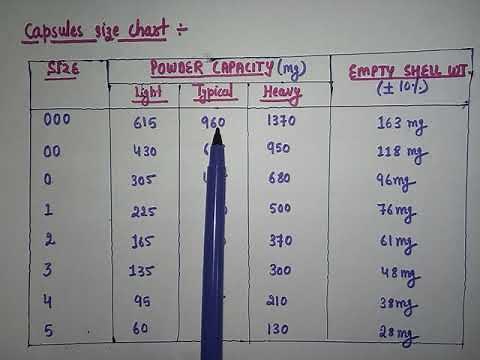 Capsules size chart :-
SIZE POWDER CAPACITY (mg) EMPTY SHELL WT.
(± 10%)
Light Typical Heavy
000 615 960 1370 163 mg
00 430 950 118 mg
0 305 680 96mg
1 225 500 76mg
2 165 370 61mg
3 135 300 48mg
4 95 210 38mg
5 60 130 28mg